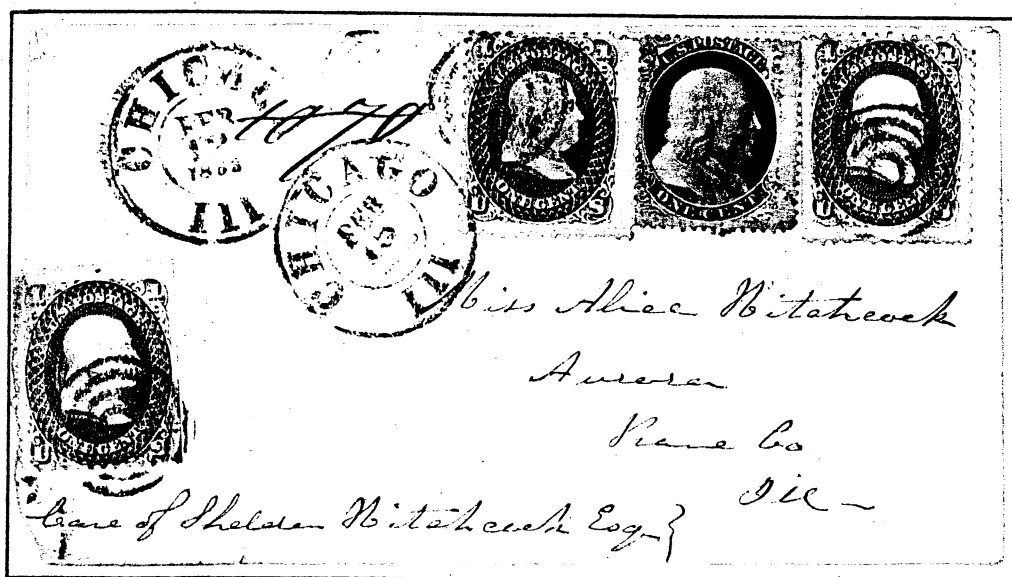 CHICAGO
FEB
1863
Ill
1070
CHICAGO Ill
FEB
15
U.S. POSTAGE
ONE CENT
U S
U.S. POSTAGE
ONE CENT
ONE CENT
U
ONE CENT
U S
Miss Alice Hitchcock
Aurora
Kane Co
Ill
Care of Sheldon Hitchcock Esq